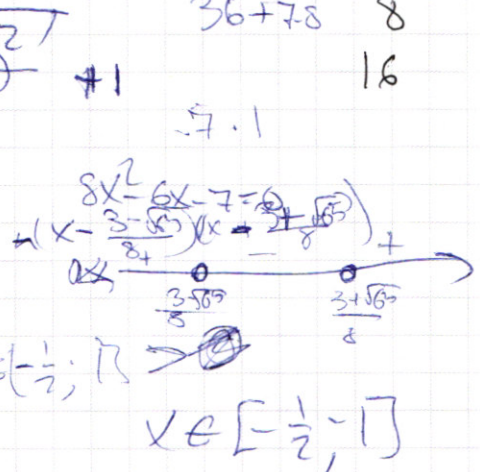 36+78 8
16
+1
7.1
8x² - 6x - 7 = 0
(x - \frac{3-\sqrt{65}}{8})(x - \frac{3+\sqrt{65}}{8})
+ - +
0x
\frac{3-\sqrt{65}}{8} \frac{3+\sqrt{65}}{8}
[-\frac{1}{2}; 1]
x ∈ [-\frac{1}{2}; 1]